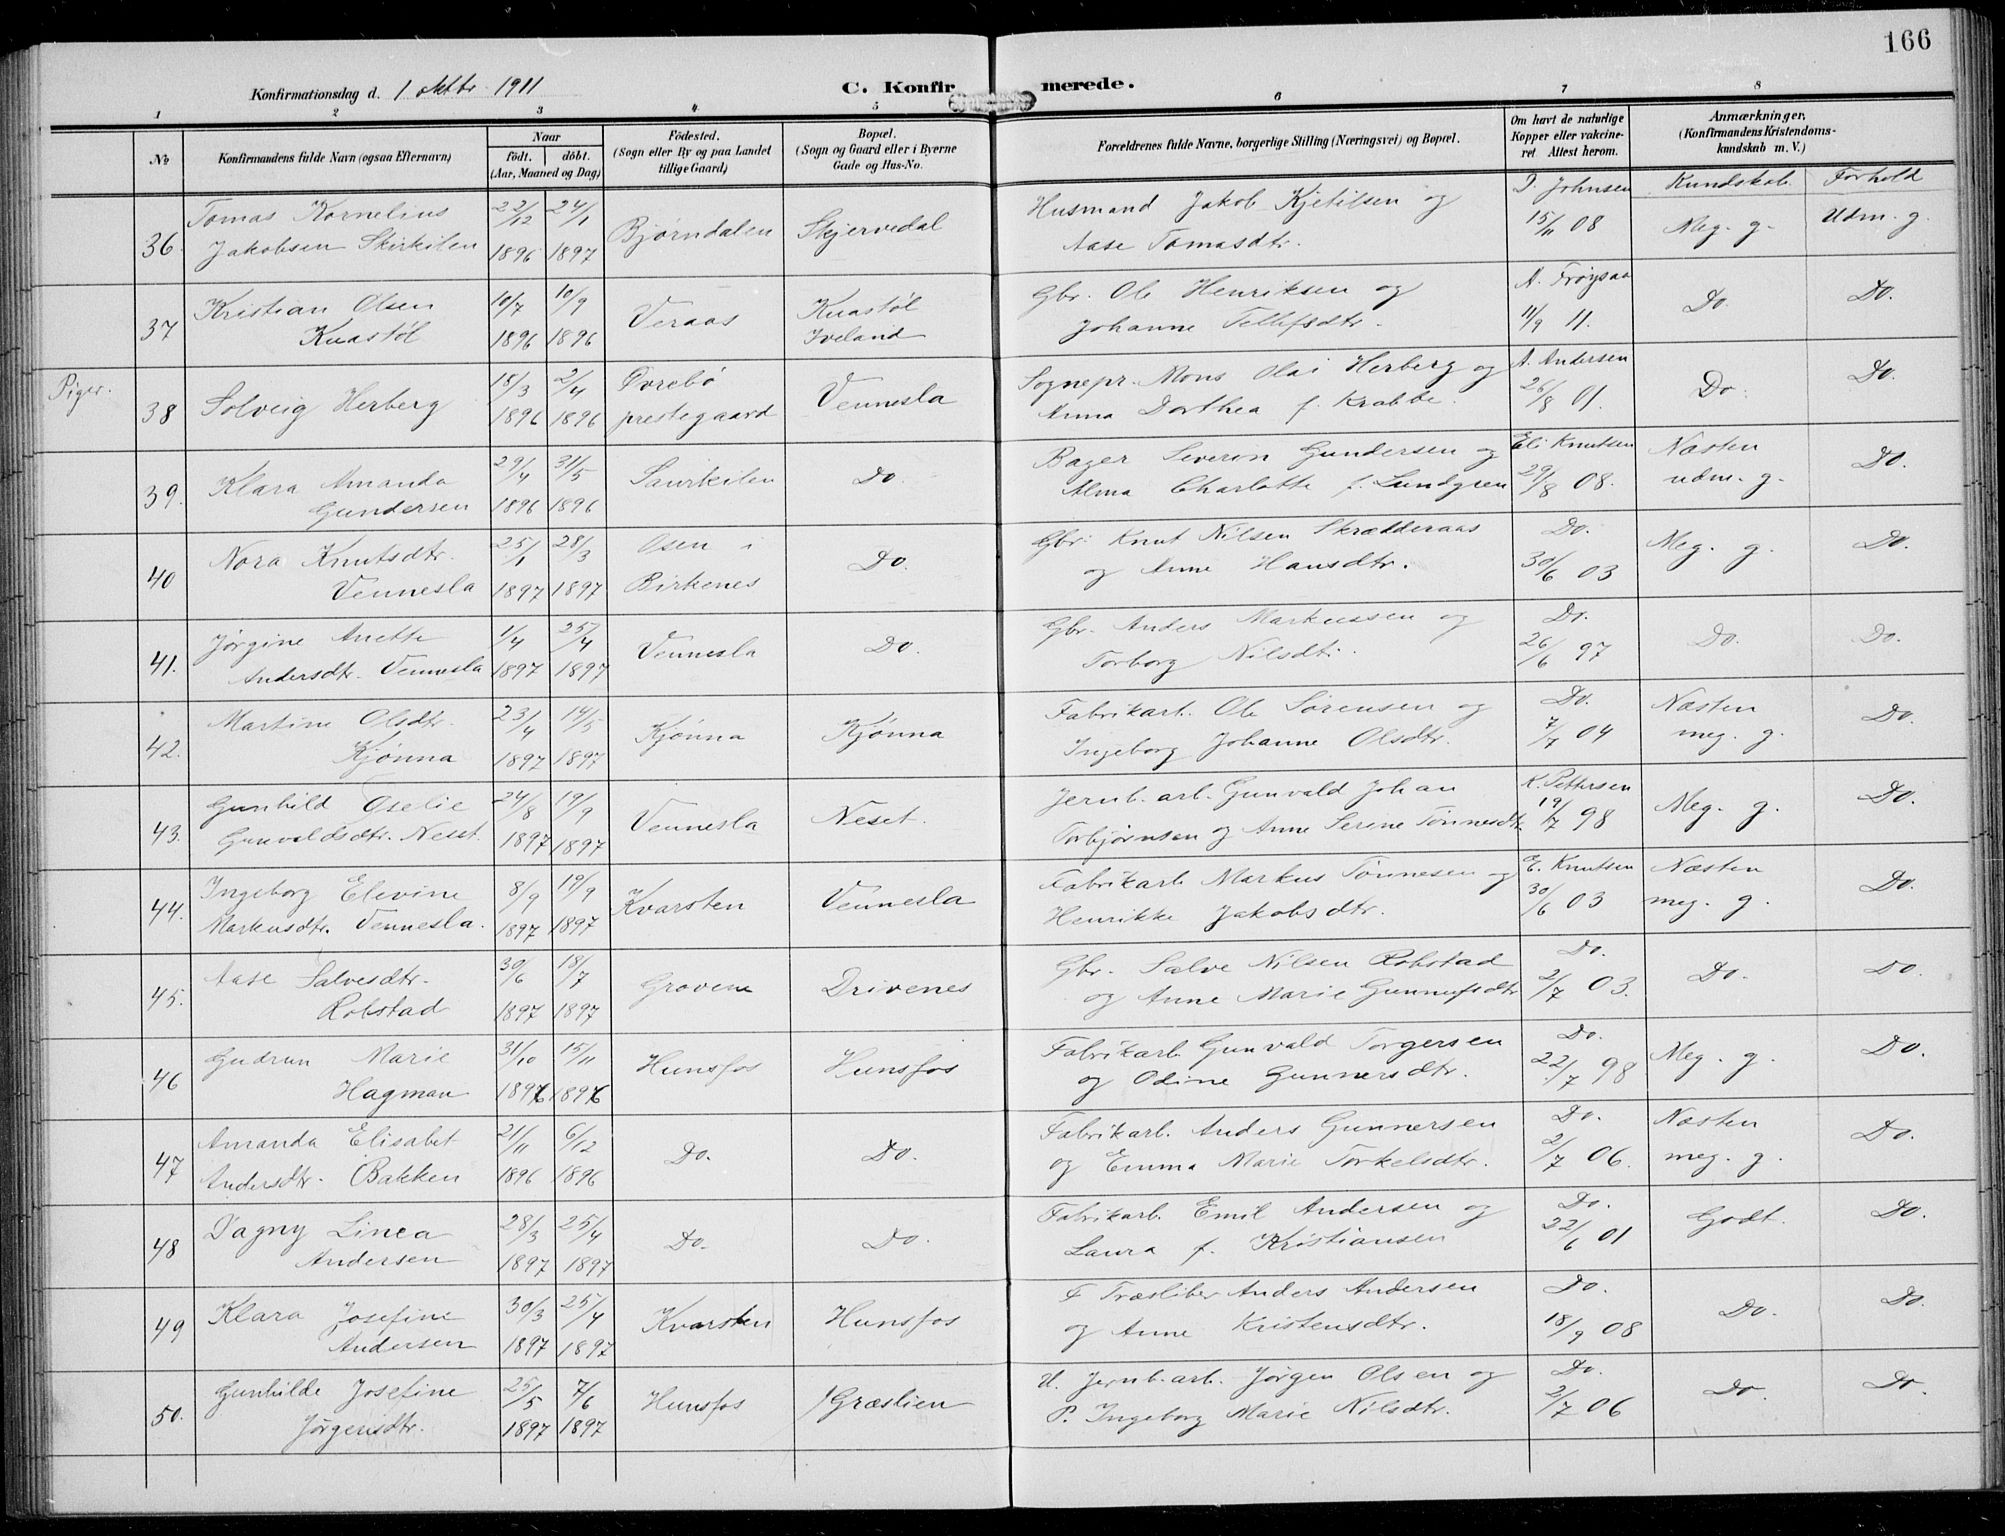 166
Konfirmationsdag d. 1 oktbr 1911
C. Konfirmerede.
1 2 3 4 5 6 7 8
No Konfirmandens fulde Navn (ogsaa Efternavn) Naar født. døbt. (Aar, Maaned og Dag) Fødested. (Sogn eller By og paa Landet tillige Gaard) Bopæl. (Sogn og Gaard eller i Byerne Gade og Hus-No. Forældrenes fulde Navne, borgerlige Stilling (Næringsvei) og Bopæl. Om havt de naturlige Kopper eller vakcineret. Attest herom. Anmærkninger, (Konfirmandens Kristendomskundskab m. V.)
Kundskab. Forhold
36 Tomas Kornelius 22/12 24/1 Bjørndalen Skjervedal Husmand Jakob Kjetilsen og J. Johnsen Meg. g. Udm. g.
Jakobsen Skirkilen 1896 1897 Aase Tomasdtr. 15/11 08
37 Kristian Olsen 10/7 10/9 Veraas Knastøl Gbr. Ole Henriksen og A. Frøysaa Do. Do.
Knastøl 1896 1896 Iveland Johanne Tellefsdtr. 11/9 11.
Piger.
38 Solveig Herberg 15/3 2/4 Øvrebø Vennesla Sognepr. Mons Olai Herberg og A. Andersen Do. Do.
1896 1896 prestegaard Anna Dorthea f. Krabbe. 26/8 01.
39. Klara Amanda 29/4 31/5 Saurkilen Do. Bager Severin Gundersen og Eli Knutsen Næsten Do.
Gundersen 1896 1896 Alma Charlotte f. Lundgren 29/8 08. udm. g.
40 Nora Knutsdtr. 25/1 28/3 Osen i Do. Gbr. Knut Nilsen Skrædderaas Do. Meg. g. Do.
Vennesla 1897 1897 Birkenes og Anne Hansdtr. 30/6 03
41. Jørgine Anette 1/4 25/4 Vennesla Do. Gbr. Anders Markussen og Do. Do. Do.
Andersdtr. Vennesla 1897 1897 Torborg Nilsdtr. 26/6 97
42. Martine Olsdtr. 23/4 14/5 Kjønna Kjønna Fabrikarb. Ole Sørensen og Do. Næsten Do.
Kjønna 1897 1897 Ingeborg Johanne Olsdtr. 7/7 04 meg. g.
43. Gunhild Oselie 24/8 19/9 Vennesla Neset. Jernb. arb. Gunvald Johan K. Pettersen Meg. g. Do.
Gunvaldsdtr. Neset. 1897 1897 Torbjørnsen og Anne Serine Tønnesdtr. 19/7 98
44. Ingeborg Elevine 8/9 19/9 Kvarsten Vennesla Fabrikarb. Markus Tønnesen og E. Knutsen Næsten Do.
Markusdtr. Vennesla. 1897 1897 Henrikke Jakobsdtr. 30/6 03 meg. g.
45. Aase Salvesdtr. 30/6 18/7 Grovene Drivenes Gbr. Salve Nilsen Robstad Do. Do. Do.
Robstad 1897 1897 og Anne Marie Gunnufsdtr 2/7 03.
46 Gudrun Marie 31/10 15/11 Hunsfos Hunsfos Fabrikarb. Gunvald Torgersen Do. Meg. g. Do.
Hagman 1896 1896 og Odine Gunnersdtr. 22/7 98
47 Amanda Elisabet 21/11 6/12 Do. Do. Fabrikarb. Anders Gunnersen Do. Næsten Do.
Andersdtr. Bakken 1896 1896 og Emma Marie Torkelsdtr. 2/7 06. meg. g.
48 Dagny Linea 28/3 25/4 Do. Do. Fabrikarb. Emil Andersen og Do. Godt. Do.
Andersen 1897 1897 Laura f. Kristiansen 22/6 01
49 Klara Josefine 30/3 25/4 Kvarsten Hunsfos F Træsliber Anders Andersen Do. Do. Do.
Andersen 1897 1897 og Anne Kristensdtr. 18/9 08
50. Gunhilde Josefine 25/5 7/6 Hunsfos Græslien U. Jernb. arb. Jørgen Olsen og Do. Do. Do.
Jørgensdtr. 1897 1897 P. Ingeborg Marie Nilsdtr. 2/7 06